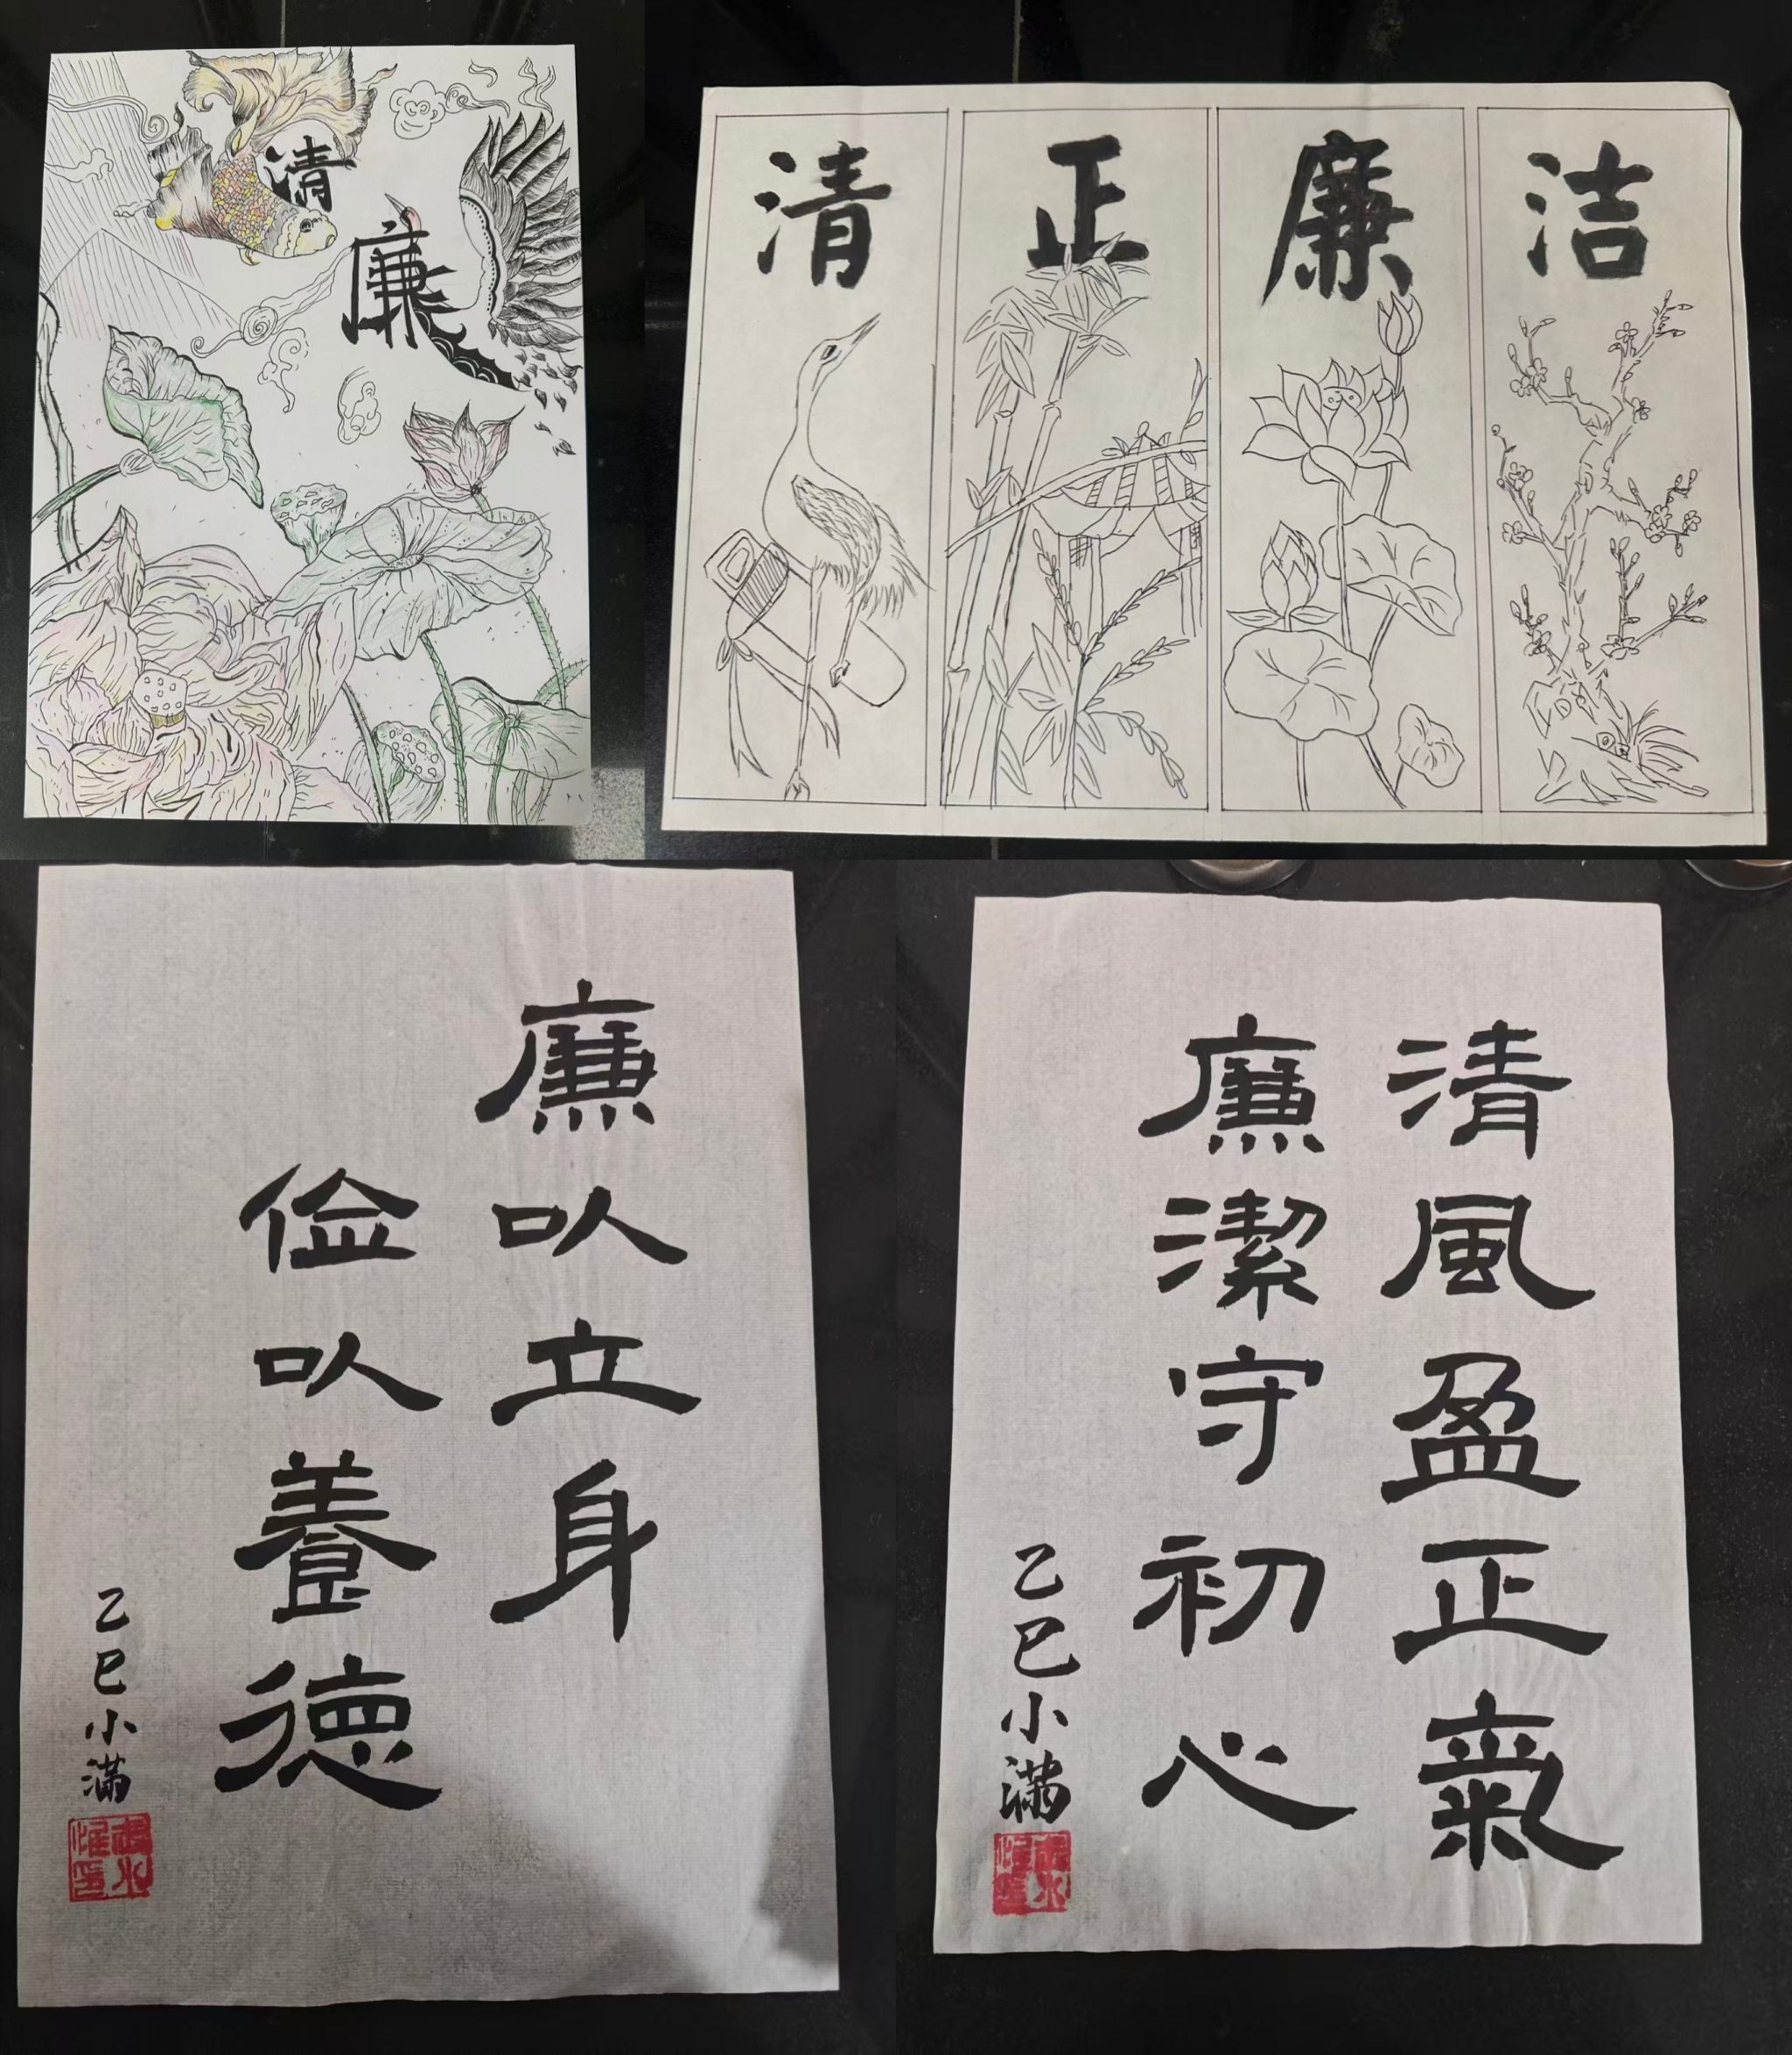 清
廉
清 正 廉 洁
廉以立身
俭以養德
乙巳小滿
清風盈正氣
廉潔守初心
乙巳小滿